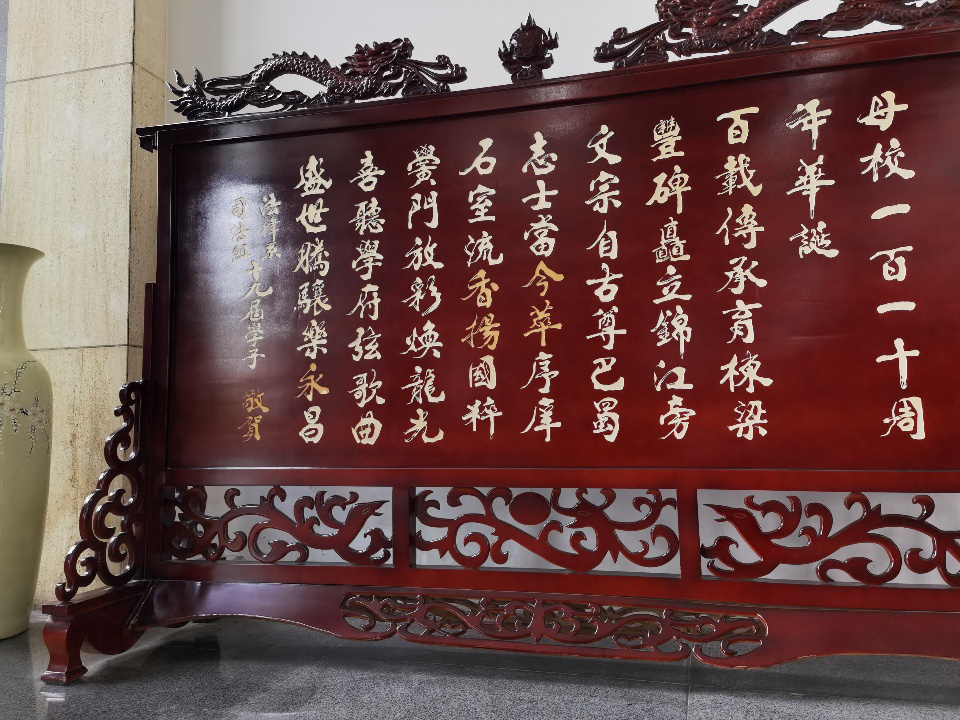 母校一百一十周
年華誕
百載傳承育棟梁
豐碑矗立錦江旁
文宗自古尊巴蜀
志士當今萃序庠
石室流香揚國粹
黌門放彩煥龍光
喜聽學府弦歌曲
盛世騰驤樂永昌
法律系
司法組
十九屆学子 敬賀